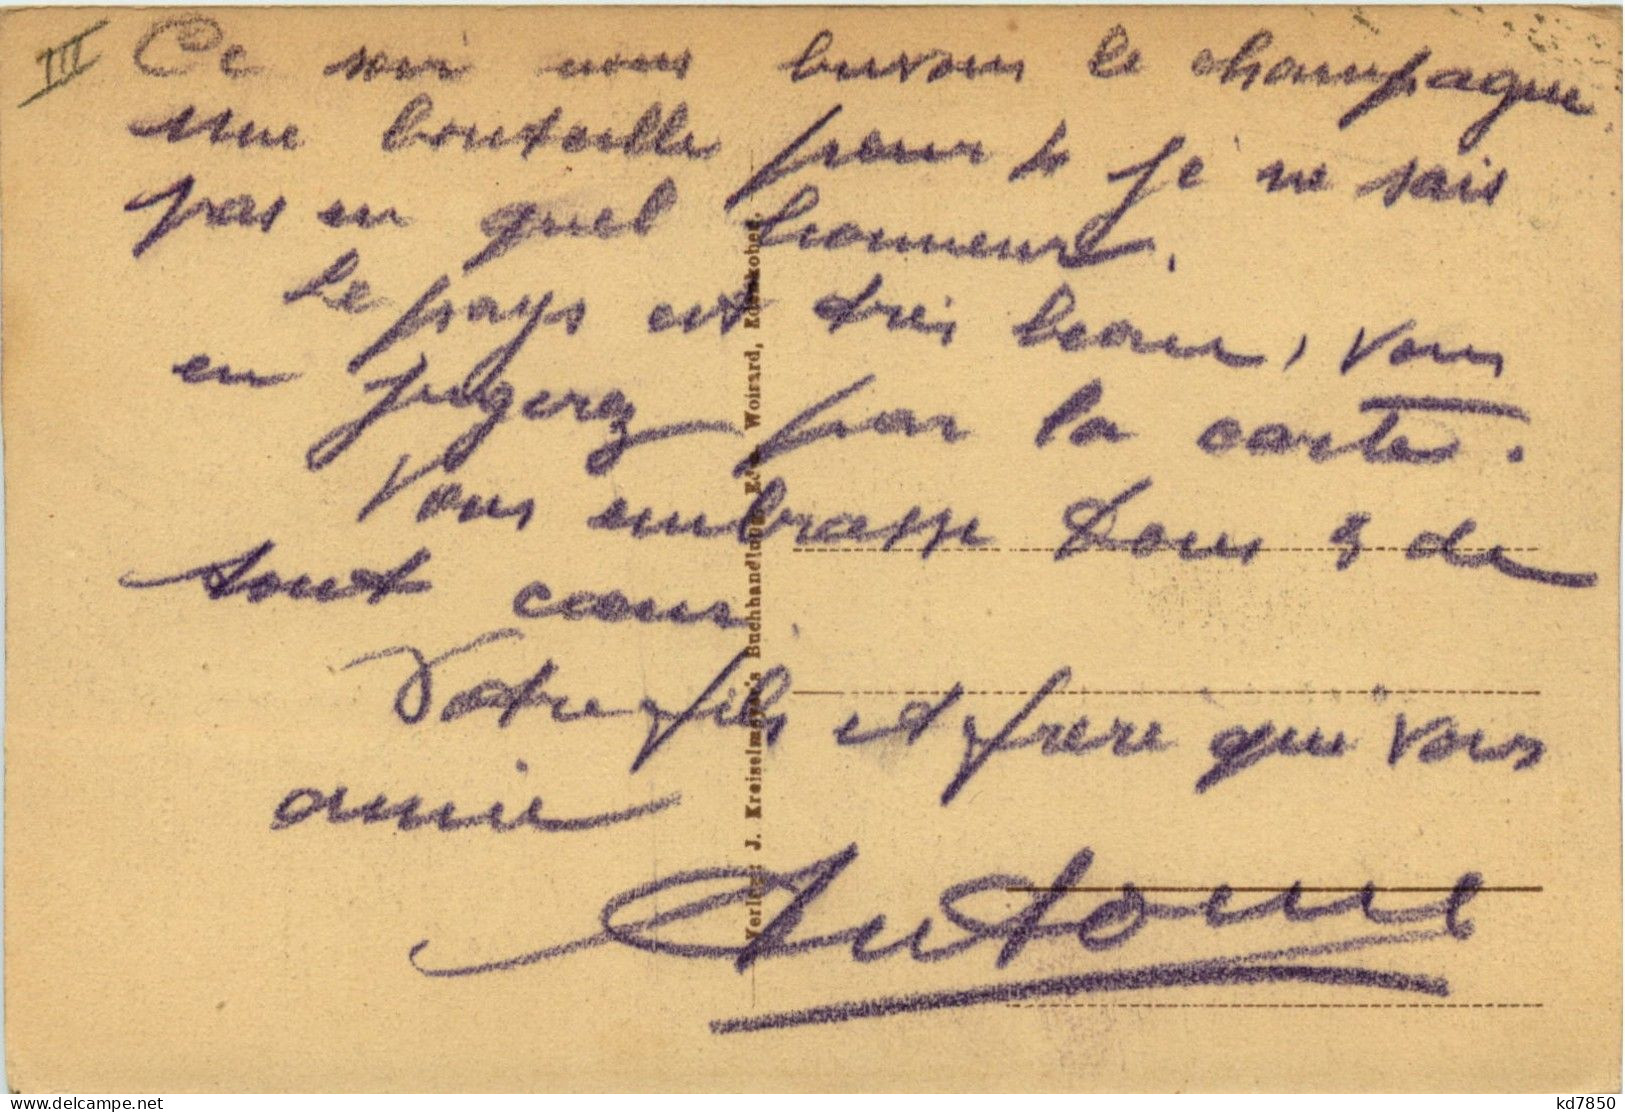 III
Ce soir nous buvons le champagne
une bouteille pour 4 je ne sais
pas en quel honneur.
Le pays est très beau, vous
en jugerez par la carte.
Vous embrasse tous 3 de
tout cœur
Votre fils et frère que vous
aime
Antoine
Verlag: J. Kreiselmeyer's Buchhandlung, E. Woisard, Edenkoben.
delcampe.net
kd7850